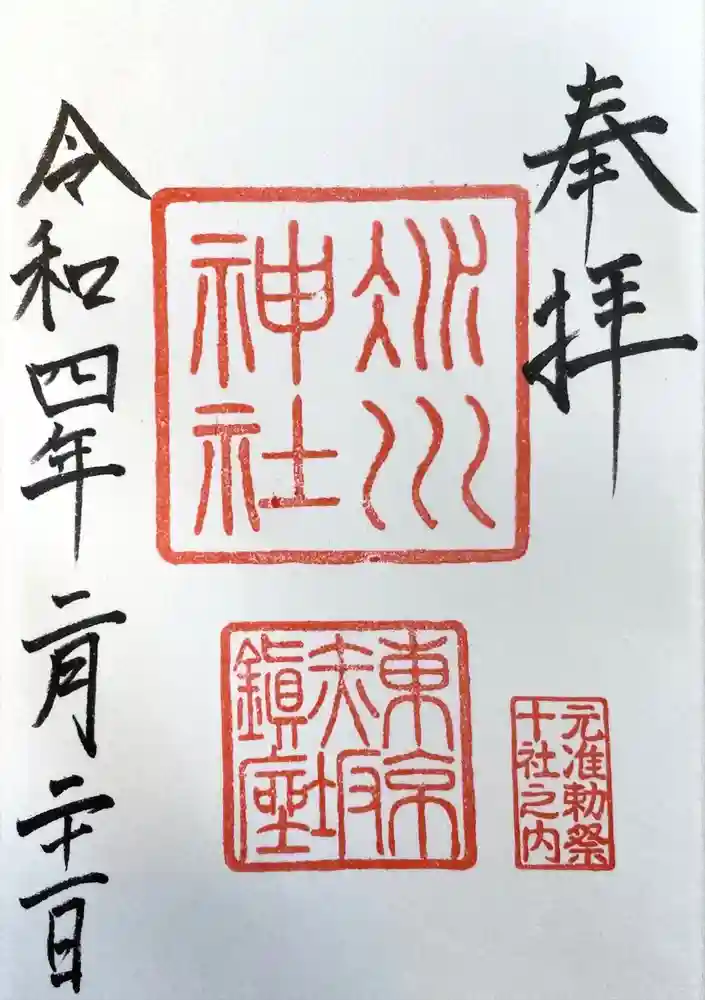 奉拝
元准勅祭
十社之内
冰川
神社
東京
赤坂
鎭座
令和四年二月二十一日